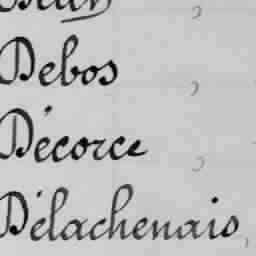 Debos
Décorce
Délachenais